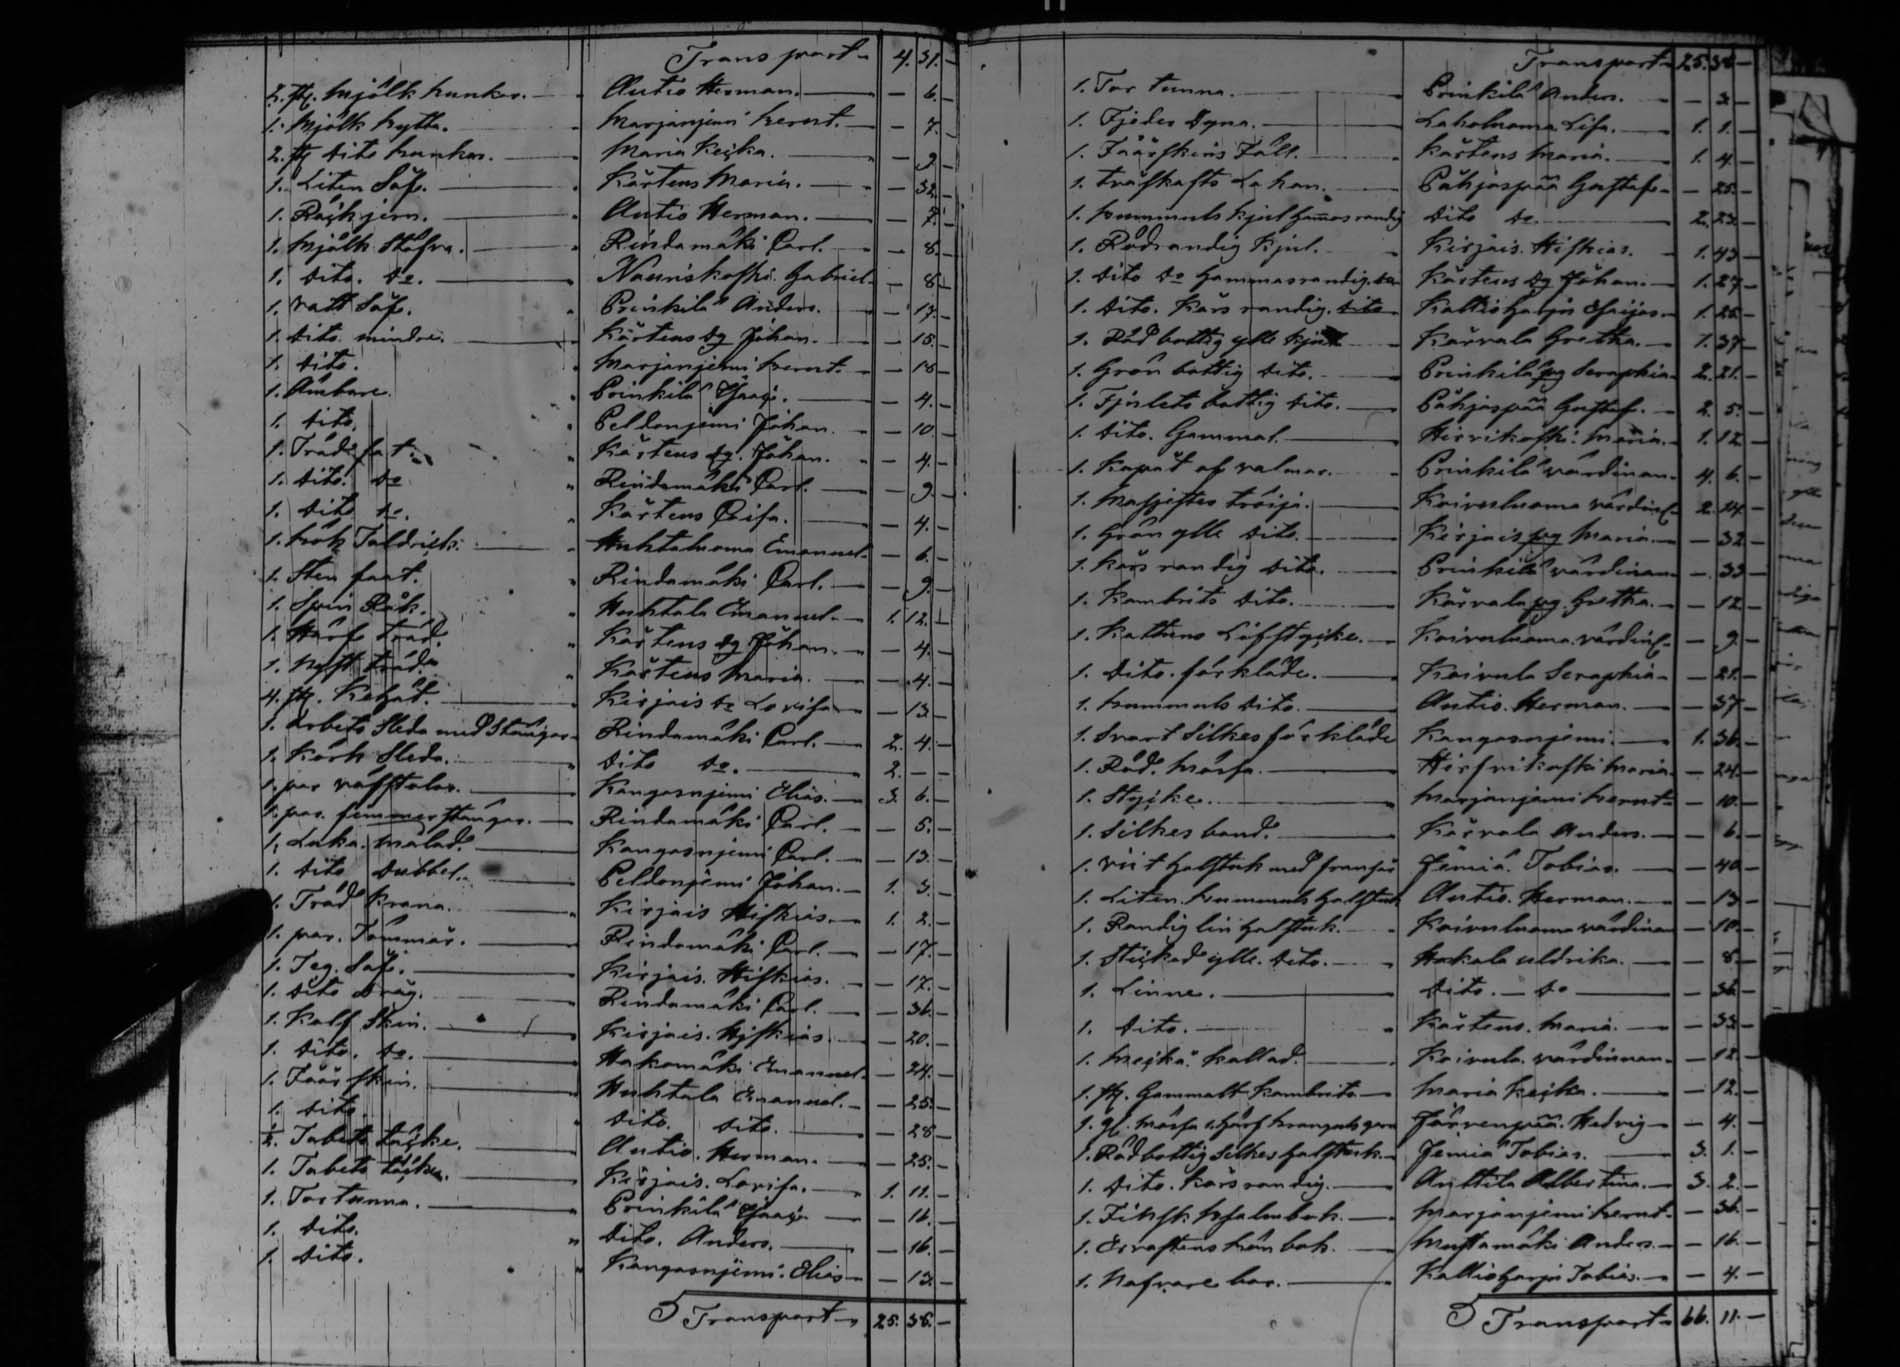 Transport 4. 31. –
2. st. Mjölk bunkar. Autio Herman. – 6. –
1. Mjölk bytta. Marjanjemi – 7. –
2. st Dito bunkar. Maria – 9. –
1. Liten Såg. Kärtens Maria. – 32. –
1. Autio Herman. – 7. –
1. Mjölk Stäfva. Rindamäki Carl. – 8. –
1. Dito. Do. Gabriel – 8 –
1. Prinkilä Anders. – 17. –
1. Dito mindre. Kärtens Johan. – 15. –
1. Dito. Marjanjemi – 18 –
1. Ämbare. Prinkilä – 4. –
1. Dito. Peldonjemi Johan. – 10 –
1. Träd fat. Kärtens Johan. – 4. –
1. Dito. Do Rindamäki Carl. – 9. –
1. Dito Do. Kärtens – 4. –
1. Huhtaluoma Emanuel – 6. –
1. Sten faat. Rindamäki Carl. – 9. –
1. Spin Råk. Huhtala Emanuel 1. 12. –
1. Kärtens Johan. – 4. –
1. Kärtens Maria. – 4. –
4. st. Kirjais Lovisa – 13 –
1. Arbets Släda med Stänger Rindamäki Carl. 2. 4. –
1. Körk Släda. Dito Do. 2. – –
1. par Kangasnjemi Elias. 3. 6. –
1. par. Rindamäki Carl. – 5. –
1. målad. Kangasnjemi Carl. – 13. –
1. Dito Dubbel. Peldonjemi Johan. 1. 3. –
1. Träd Krana. Kirjais Hiskias. 1. 2. –
1. par. Tömmar. Rindamäki Carl. – 17. –
1. Kirjais. Hiskias. – 17. –
1. Dito Rindamäki Carl. – 36 –
1. Kalf Skin. Kirjais. Hiskias. – 20. –
1. Dito. Do. Hakomäki Emanuel – 24. –
1. Fåår skin. Huhtala Emanuel. – 25. –
1. Dito. Dito. Dito. – 28 –
½. Tabets Autio. Herman. – 25. –
1. Tabets Kirjais. Lovisa. 1. 11. –
1. Tortunna. Prinkilä – 16. –
1. Dito. Dito. Anders. – 16. –
1. Dito. Kangasnjemi. Elias – 13. –
Transport 25. 38. –
Transport 25. 38 –
1. Tor tunna. Prinkilä Anders. – 3. –
1. Fjeder Dyna. Laholuoma Lisa. 1. 1. –
1. Fåårskins Fäll. Kärtens Maria. 1. 4. –
1. Tväskafts Lakan. Påhjaspää Gustaf – 25. –
1. Bummuls Kjol Dito Do. 2. 23. –
1. Rödrandig Kjol. Kirjais. Hiskias. 1. 43 –
1. Dito Do Kärtens Johan. 1. 27 –
1. Dito. Kårs randig. Dito Kallioharju 1. 25 –
1. Röd bottig ylle Kjol Kärvala Gretha. 1. 37 –
1. Grön bottig Dito. Prinkilä Seraphia 2. 21. –
1. Fjolets bottig Dito. Påhjaspää Gustaf. 2. 5. –
1. Dito. Gammal. Hirvikoski Maria. 1. 12. –
1. Kapåt af valmar. Prinkilä värdinan 4. 6. –
1. tröija. Koivuluoma 2. 14. –
1. Grön ylle Dito. Kirjais Maria. – 32. –
1. Kårs randig Dito. Prinkilä värdinan – 33 –
1. Kambrits Dito. Kärvala Gretha. – 12 –
1. Kattuns Lifstycke. Koivuluoma – 9. –
1. Dito. förkläde. Koivula Seraphia – 21. –
1. Bummuls Dito. Autio. Herman. – 37 –
1. Svart Silkes förkläde Kangasnjemi. 1. 36. –
1. Röd. Mössa. Maria – 24. –
1. Stycke. Marjanjemi – 10. –
1. Silkes band. Kärvala Anders. – 6. –
1. Halsduk med fransar Jemiä. Tobias. – 40 –
1. Liten. Bummuls Halsduk Autio. Herman. – 13 –
1. Randig lin Halsduk. Koivuluoma värdina – 10. –
1. Stickad ylle. Dito. Hakala Uldrika. – 8. –
1. Linne. Dito. Do – 36 –
1. Dito. Kärtens. Maria. – 33 –
1. Kallad. Koivula. värdinnan. – 12. –
1. st. Gammalt Kambrits Maria – 12. –
1. Mössa Järvenpää. Hedvig – 4. –
1. Rödbottig Silkes Halsduk Jemiä Tobias. 3. 1. –
1. Dito. Kårsrandig. Anttila Albertina. 3. 2. –
1. Finsk Psalmbok. Marjanjemi – 36. –
1. bok. Mustamäki Anders. – 16. –
1. Nafvare bor. Kallioharju Tobias. – 4. –
Transport 66. 11. –